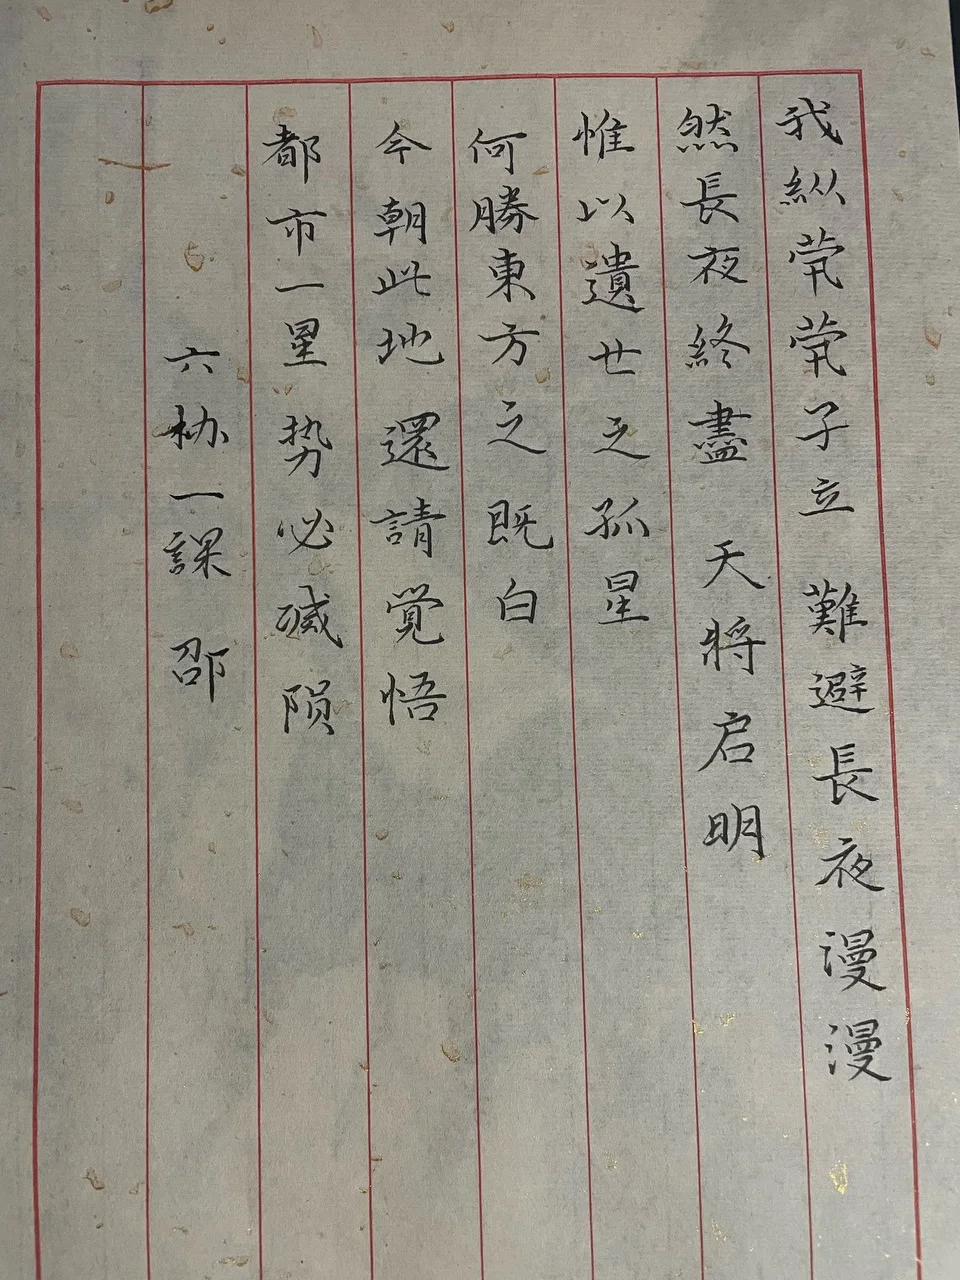 我縱茕茕孑立 難避長夜漫漫
然長夜終盡 天將启明
惟以遺世之孤星
何勝東方之既白
今朝此地 還請覺悟
都市一星 势必滅陨
六协一課 邵